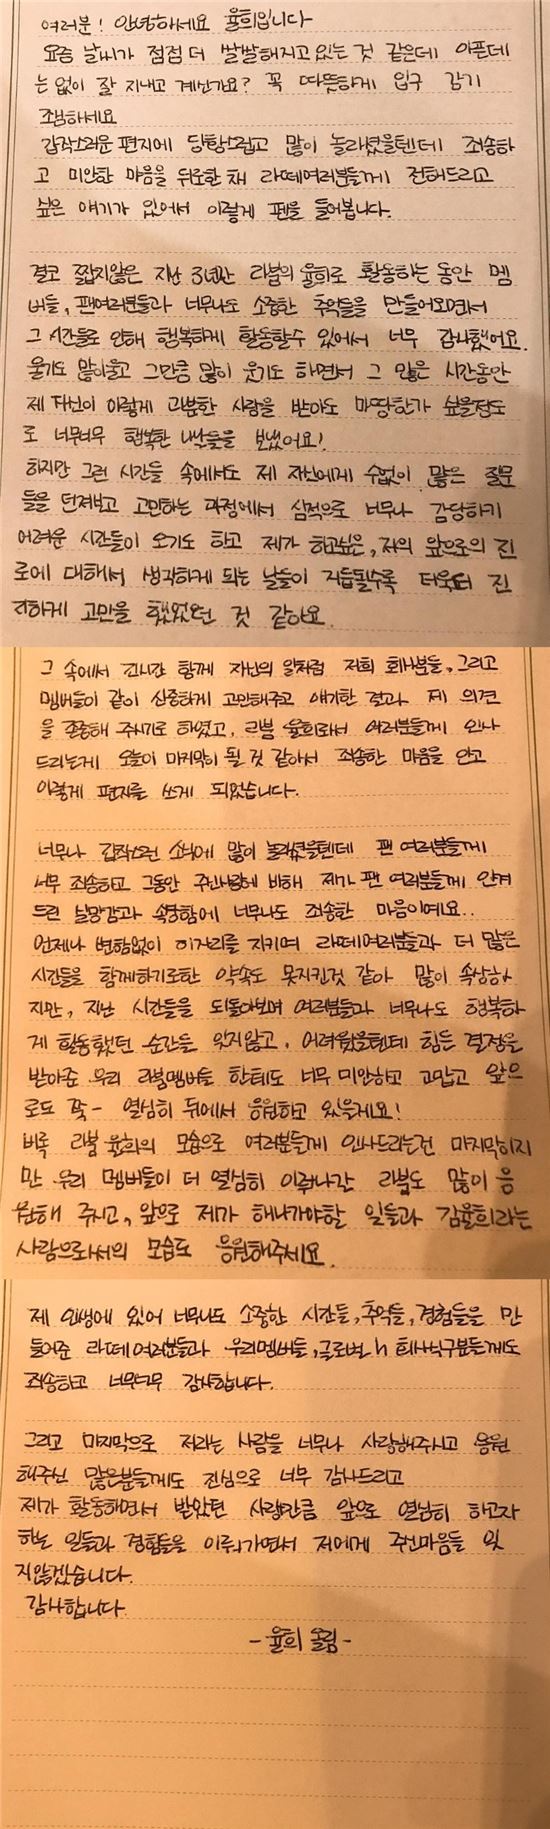 여러분! 안녕하세요 율희입니다
요즘 날씨가 점점 더 쌀쌀해지고있는 것 같은데 아픈데
는없이 잘 지내고 계신가요? 꼭 따뜻하게 입구 감기
조심하세요
갑작스러운 편지에 당황스럽고 많이 놀라셨을텐데 죄송하
고 미안한 마음을 뒤로한 채 라떼여러분들께 전해드리고
싶은 얘기가 있어서 이렇게 펜을 들어봅니다.
결코 짧지않은 지난 3년간 라붐의 율희로 활동하는 동안 멤
버들, 팬여러분들과 너무나도 소중한 추억들을 만들어오면서
그 시간들로 인해 행복하게 활동할수 있어서 너무 감사했어요.
울기도 많이울고 그만큼 많이 웃기도 하면서 그 많은 시간동안
제 자신이 이렇게 과분한 사랑을 받아도 마땅한가 싶을정도
로 너무너무 행복한 나날들을 보냈어요!
하지만 그런 시간들 속에서도 제 자신에게 수없이 많은 질문
들을 던져보고 고민하는 과정에서 심적으로 너무나 감당하기
어려운 시간들이 오기도 하고 제가 하고싶은, 저의 앞으로의 진
로에 대해서 생각하게 되는 날들이 거듭될수록 더욱더 진
지하게 고민을 했었던 것 같아요.
그 속에서 긴시간 함께 자신의 일처럼 저희 회사분들, 그리고
멤버들이 같이 신중하게 고민해주고 얘기한 결과 제 의견
을 존중해 주시기로 하였고, 라붐 율희로서 여러분들께 인사
드리는게 오늘이 마지막이 될 것 같아서 죄송한 마음을 안고
이렇게 편지를 쓰게 되었습니다.
너무나 갑작스런 소식에 많이 놀라셨을텐데 팬 여러분들께
너무 죄송하고 그동안 주신사랑에 비해 제가 팬 여러분들께 안겨
드린 실망감과 속상함에 너무나도 죄송한 마음이예요..
언제나 변함없이 이자리를 지키며 라떼여러분들과 더 많은
시간들을 함께하기로한 약속도 못지킨것 같아 많이 속상하
지만, 지난 시간들을 되돌아보며 여러분들과 너무나도 행복하
게 활동했던 순간들을 잊지않고, 어려웠을텐데 힘든 결정을
받아준 우리 라붐멤버들 한테도 너무 미안하고 고맙고 앞으
로도 쭉- 열심히 뒤에서 응원하고 있을게요!
비록 라붐 율희의 모습으로 여러분들께 인사드리는건 마지막이지
만 우리 멤버들이 더 열심히 이뤄나갈 라붐도 많이 응
원해 주시고, 앞으로 제가 해나가야할 일들과 김율희라는
사람으로서의 모습도 응원해주세요.
제 인생에 있어 너무나도 소중한 시간들, 추억들, 경험들을 만
들어준 라떼여러분들과 우리멤버들, 글로벌h 회사식구분들께도
죄송하고 너무너무 감사합니다.
그리고 마지막으로 저라는 사람을 너무나 사랑해주시고 응원
해주신 많은분들께도 진심으로 너무 감사드리고
제가 활동하면서 받았던 사랑만큼 앞으로 열심히 하고자
하는 일들과 경험들을 이뤄가면서 저에게 주신마음들 잊
지않겠습니다.
감사합니다.
- 율희 올림 -